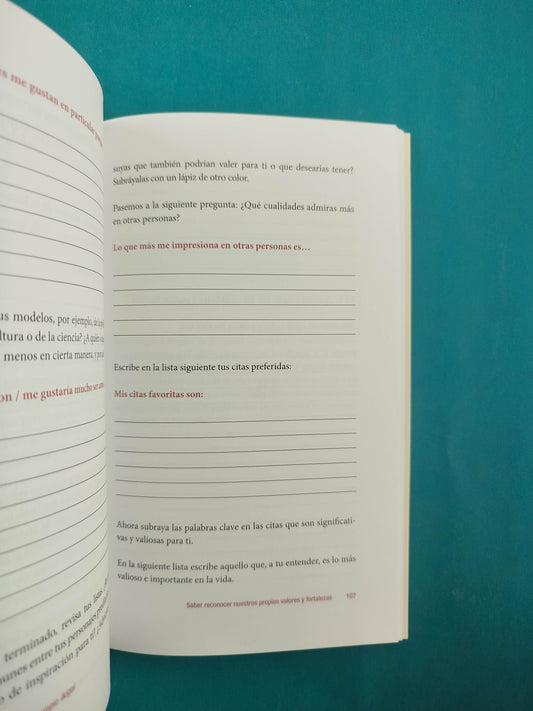 me gustan en particular
us modelos, por ejemplo, de la
ltura o de la ciencia? ¿A quién
menos en cierta manera, y por
on / me gustaría mucho ser
terminado, revisa tus listas.
unes entre tus personajes
o de inspiración para ti?
suyas que también podrían valer para ti o que desearías tener?
Subráyalas con un lápiz de otro color.
Pasemos a la siguiente pregunta: ¿Qué cualidades admiras más
en otras personas?
Lo que más me impresiona en otras personas es…
Escribe en la lista siguiente tus citas preferidas:
Mis citas favoritas son:
Ahora subraya las palabras clave en las citas que son significati-
vas y valiosas para ti.
En la siguiente lista escribe aquello que, a tu entender, es lo más
valioso e importante en la vida.
Saber reconocer nuestros propios valores y fortalezas 107